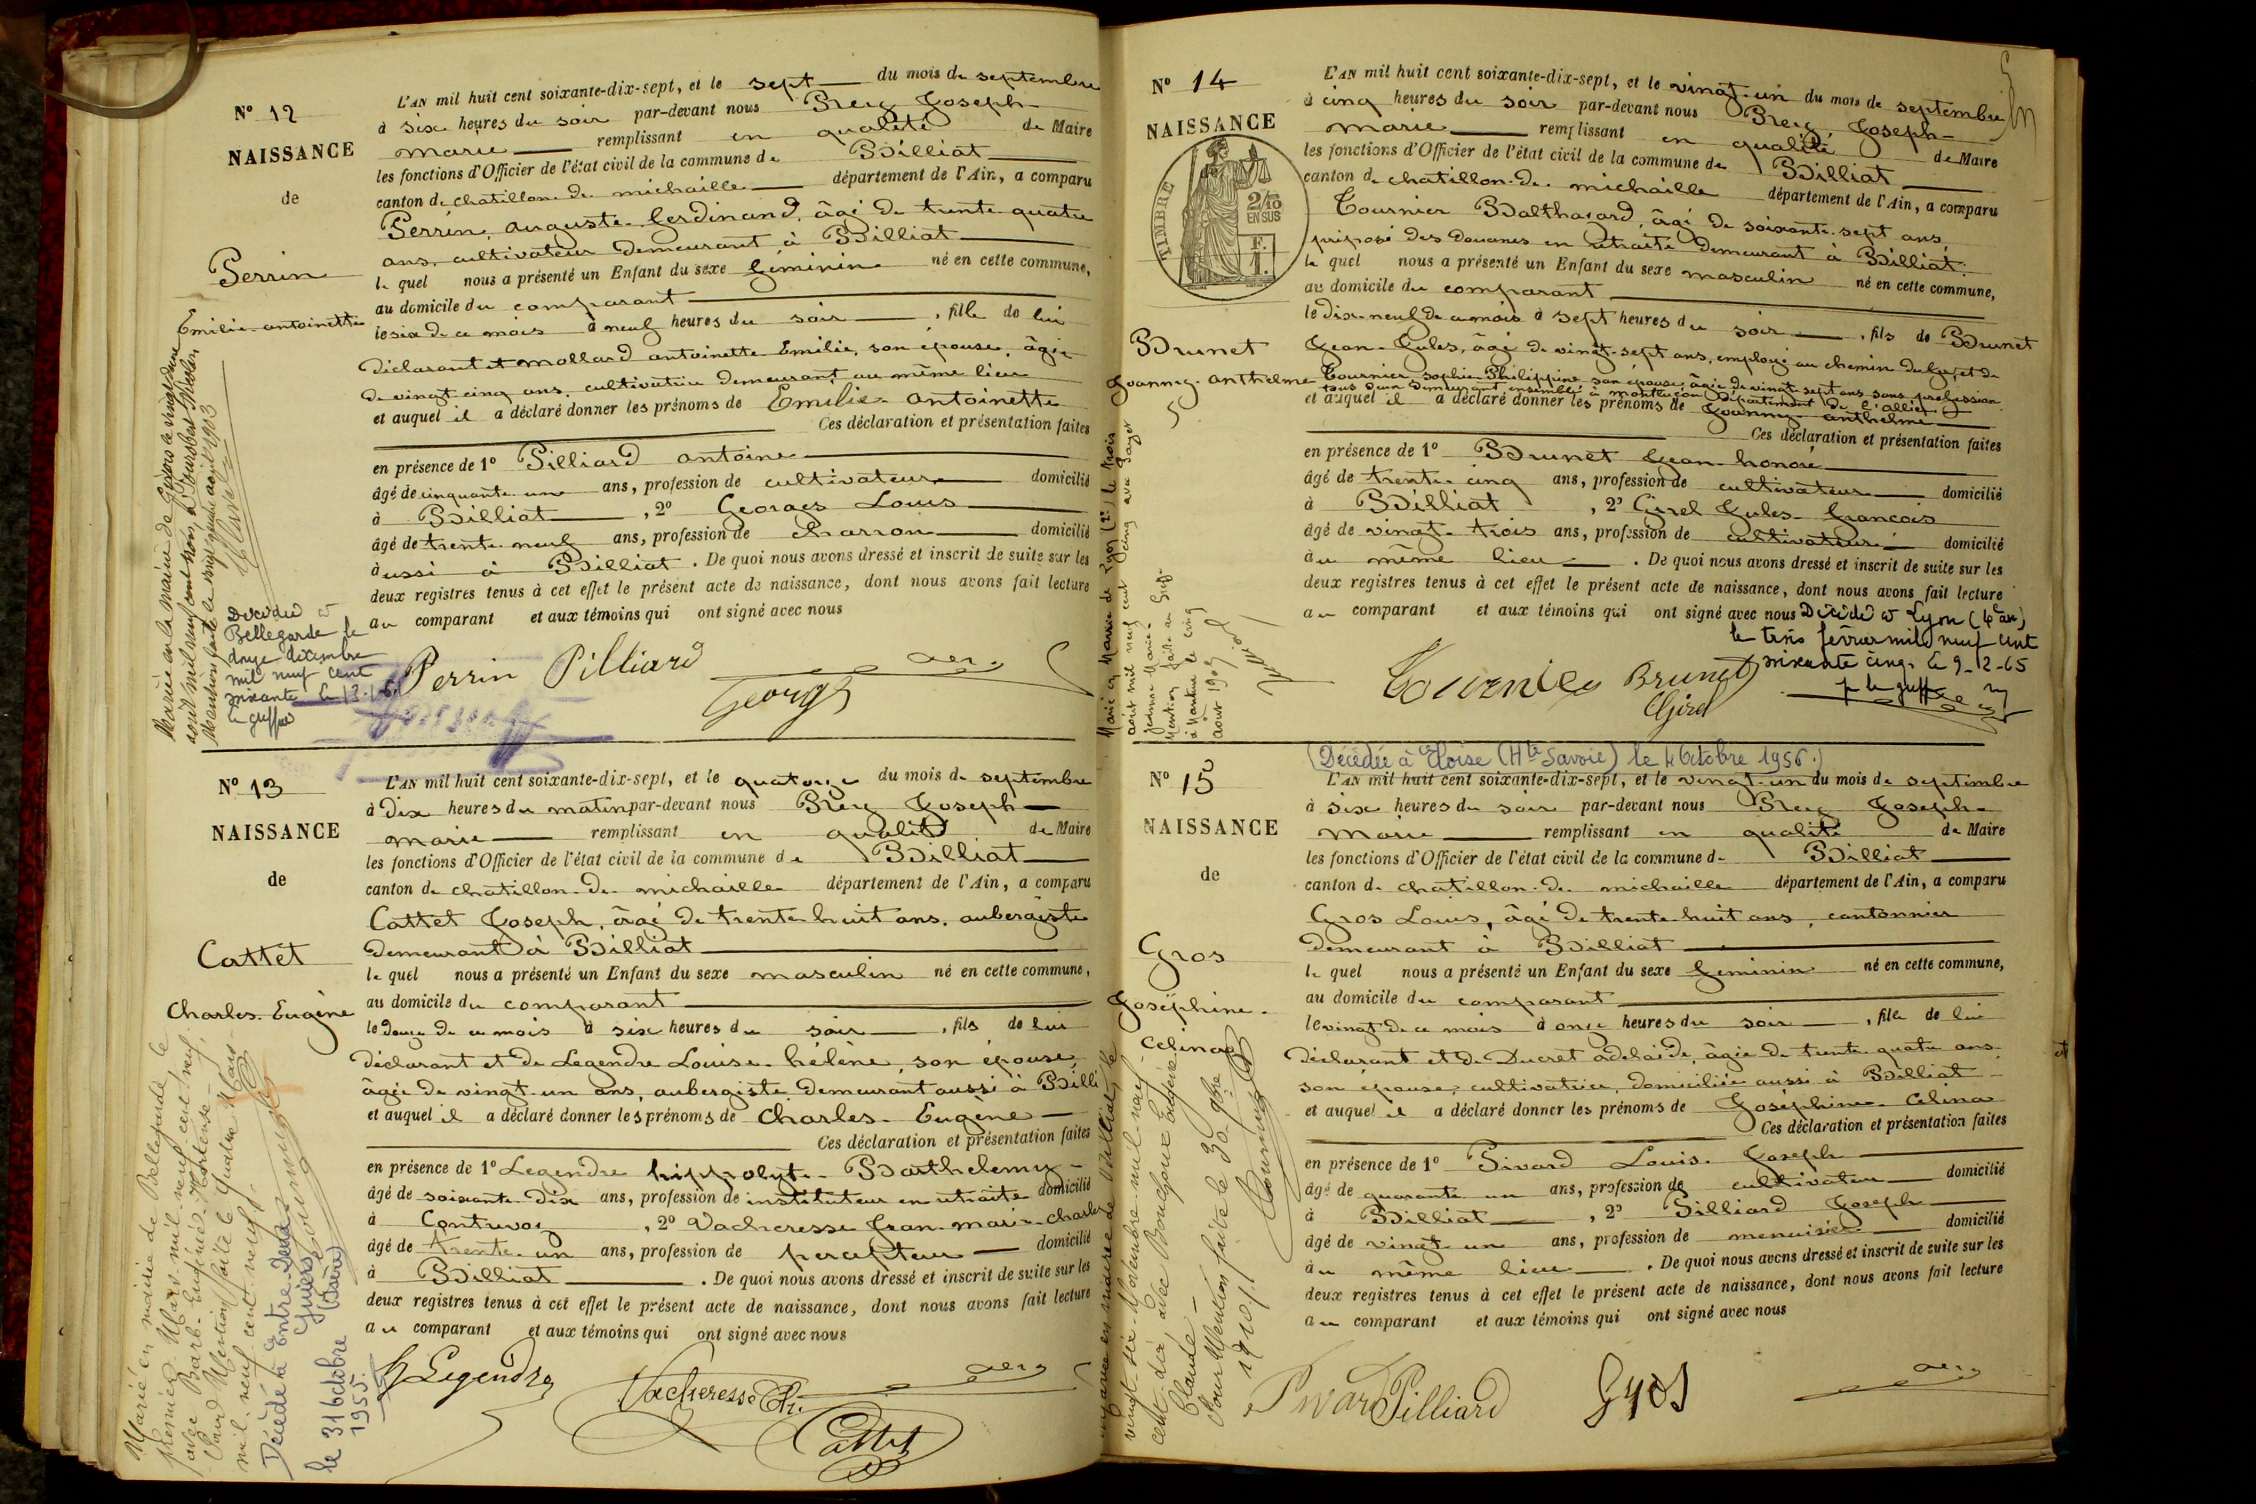 N° 12
NAISSANCE
de
Perrin
Emilie antoinette
L'AN mil huit cent soixante-dix-sept, et le sept du mois de septembre
à six heures du soir par-devant nous Brey Joseph
marie remplissant en qualité de Maire
les fonctions d'Officier de l'état civil de la commune de Billiat
canton de chatillon de michaille département de l'Ain, a comparu
Perrin, auguste ferdinand, âgé de trente quatre
ans, cultivateur demeurant à Billiat
le quel nous a présenté un Enfant du sexe féminin né en cette commune,
au domicile du comparant
le six de ce mois à neuf heures du soir, fille de lui
déclarant et mollard antoinette Emilie, son épouse, âgée
de vingt cinq ans, cultivatrice demeurant au même lieu
et auquel il a déclaré donner les prénoms de Emilie antoinette
Ces déclaration et présentation faites
en présence de 1° Pilliard antoine
âgé de cinquante un ans, profession de cultivateur domicilié
à Billiat, 2° Georges Louis
âgé de trente neuf ans, profession de charron domicilié
aussi à Billiat. De quoi nous avons dressé et inscrit de suite sur les
deux registres tenus à cet effet le présent acte de naissance, dont nous avons fait lecture
au comparant et aux témoins qui ont signé avec nous
Perrin Pilliard
Georges
Décédée à
Bellegarde le
douze décembre
mil neuf cent
soixante
le greffier
N° 13
NAISSANCE
de
Cattet
Charles Eugène
L'AN mil huit cent soixante-dix-sept, et le quatorze du mois de septembre
à dix heures du matin par-devant nous Brey Joseph
marie remplissant en qualité de Maire
les fonctions d'Officier de l'état civil de la commune de Billiat
canton de chatillon de michaille département de l'Ain, a comparu
Cattet Joseph, âgé de trente huit ans, aubergiste
demeurant à Billiat
le quel nous a présenté un Enfant du sexe masculin né en cette commune,
au domicile du comparant
le douze de ce mois à six heures du soir, fils de lui
déclarant et de Legendre Louise hélène, son épouse
âgée de vingt un ans, aubergiste demeurant aussi à Billi
et auquel il a déclaré donner les prénoms de Charles Eugène
Ces déclaration et présentation faites
en présence de 1° Legendre hippolyte Barthelemy
âgé de soixante dix ans, profession de instituteur en retraite domicilié
à Contrevoz, 2° Vacheresse Jean marie charles
âgé de trente un ans, profession de percepteur domicilié
à Billiat. De quoi nous avons dressé et inscrit de suite sur les
deux registres tenus à cet effet le présent acte de naissance, dont nous avons fait lecture
au comparant et aux témoins qui ont signé avec nous
H Legendre
Vacheresse Ch.
Cattet
Marié en mairie de Bellegarde le
premier Mars mil neuf cent neuf,
avec Barb Eugénie Hortense
Pour Mention faite le Quatre Mars
mil neuf cent neuf.
Décédé à Entre-Deux
Guiers (Isère)
le 31 octobre
1955.
N° 14
NAISSANCE
TIMBRE
2/10
EN SUS
F.
1.
Brunet
Joanny anthelme
L'AN mil huit cent soixante-dix-sept, et le vingt-un du mois de septembre
à cinq heures du soir par-devant nous Brey Joseph
marie remplissant en qualité de Maire
les fonctions d'Officier de l'état civil de la commune de Billiat
canton de chatillon de michaille département de l'Ain, a comparu
Tournier Balthazard, âgé de soixante sept ans,
préposé des douanes en retraite demeurant à Billiat.
le quel nous a présenté un Enfant du sexe masculin né en cette commune,
au domicile du comparant
le dix-neuf de ce mois à sept heures du soir, fils de Brunet
Jean Jules, âgé de vingt-sept ans, employé au chemin de fer, et de
Tournier sophie Philippine son épouse âgée de vingt sept ans sans profession
tous deux demeurant ensemble à montluçon département de l'allier
et auquel il a déclaré donner les prénoms de Joanny anthelme
Ces déclaration et présentation faites
en présence de 1° Brunet Jean honoré
âgé de trente cinq ans, profession de cultivateur domicilié
à Billiat, 2° Girel Jules françois
âgé de vingt trois ans, profession de cultivateur domicilié
au même lieu. De quoi nous avons dressé et inscrit de suite sur les
deux registres tenus à cet effet le présent acte de naissance, dont nous avons fait lecture
au comparant et aux témoins qui ont signé avec nous
Décédé à Lyon (4e arr)
le trois février mil neuf cent
soixante cinq. le 9-2-65
p le greffier
Tournier Brunet
Girel
N° 15
NAISSANCE
de
Gros
Joséphine
Célina
(Décédée à Eloise (Hte Savoie) le 4 Octobre 1956.)
L'AN mil huit cent soixante-dix-sept, et le vingt-un du mois de septembre
à six heures du soir par-devant nous Brey Joseph
Marie remplissant en qualité de Maire
les fonctions d'Officier de l'état civil de la commune de Billiat
canton de chatillon de michaille département de l'Ain, a comparu
Gros Louis, âgé de trente huit ans, cantonnier
demeurant à Billiat
le quel nous a présenté un Enfant du sexe féminin né en cette commune,
au domicile du comparant
le vingt de ce mois à onze heures du soir, fille de lui
déclarant et de Ducret adelaïde, âgée de trente quatre ans
son épouse, cultivatrice, domiciliée aussi à Billiat
et auquel il a déclaré donner les prénoms de Joséphine Célina
Ces déclaration et présentation faites
en présence de 1° Pivard Louis Joseph
âgé de quarante un ans, profession de cultivateur domicilié
à Billiat, 2° Pilliard Joseph
âgé de vingt un ans, profession de menuisier domicilié
au même lieu. De quoi nous avons dressé et inscrit de suite sur les
deux registres tenus à cet effet le présent acte de naissance, dont nous avons fait lecture
au comparant et aux témoins qui ont signé avec nous
Pivard Pilliard Gros